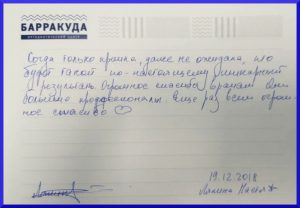 БАРРАКУДА
Когда только пришла, даже не ожидала, что
будет такой по-настоящему шикарный
результат. Огромное спасибо врачам! Они
большие профессионалы. Еще раз всем огром-
ное спасибо
19.12.2018